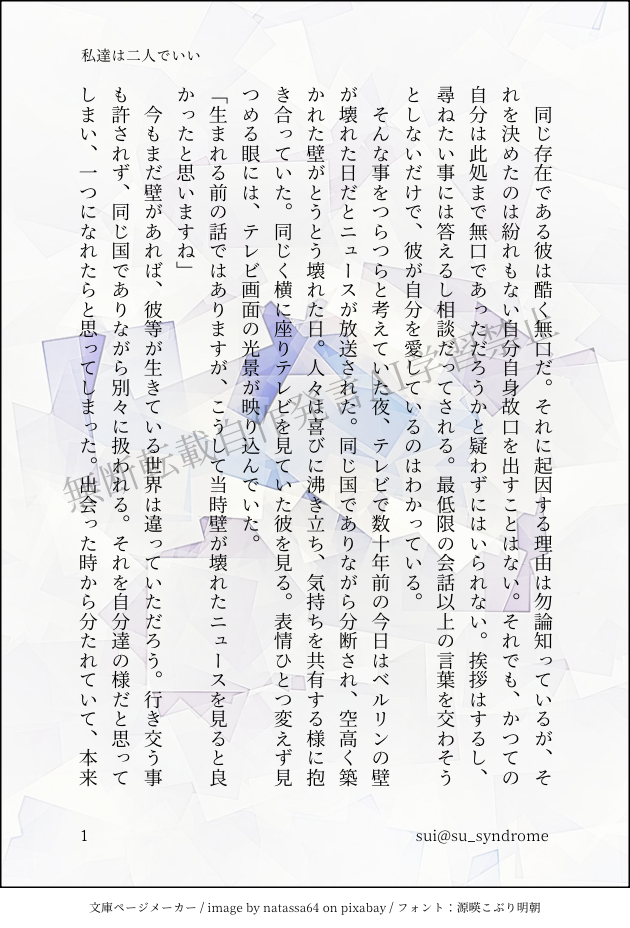 私達は二人でいい
　同じ存在である彼は酷く無口だ。それに起因する理由は勿論知っているが、そ
れを決めたのは紛れもない自分自身故口を出すことはない。それでも、かつての
自分は此処まで無口であっただろうかと疑わずにはいられない。挨拶はするし、
尋ねたい事には答えるし相談だってされる。最低限の会話以上の言葉を交わそう
としないだけで、彼が自分を愛しているのはわかっている。
　そんな事をつらつらと考えていた夜、テレビで数十年前の今日はベルリンの壁
が壊れた日だとニュースが放送された。同じ国でありながら分断され、空高く築
かれた壁がとうとう壊れた日。人々は喜びに沸き立ち、気持ちを共有する様に抱
き合っていた。同じく横に座りテレビを見ていた彼を見る。表情ひとつ変えず見
つめる眼には、テレビ画面の光景が映り込んでいた。
「生まれる前の話ではありますが、こうして当時壁が壊れたニュースを見ると良
かったと思いますね」
　今もまだ壁があれば、彼等が生きている世界は違っていただろう。行き交う事
も許されず、同じ国でありながら別々に扱われる。それを自分達の様だと思って
しまい、一つになれたらと思ってしまった。出会った時から分たれていて、本来
無断転載自作発言AI学習禁止
1
sui@su_syndrome
文庫ページメーカー / image by natassa64 on pixabay / フォント：源暎こぶり明朝